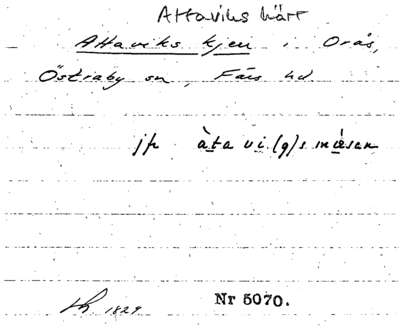 Attaviks kärr
Attaviks kjen i Orås,
Östraby sn, Färs hd
jfr àta vi(g)s mæsan
1829
Nr 5070.